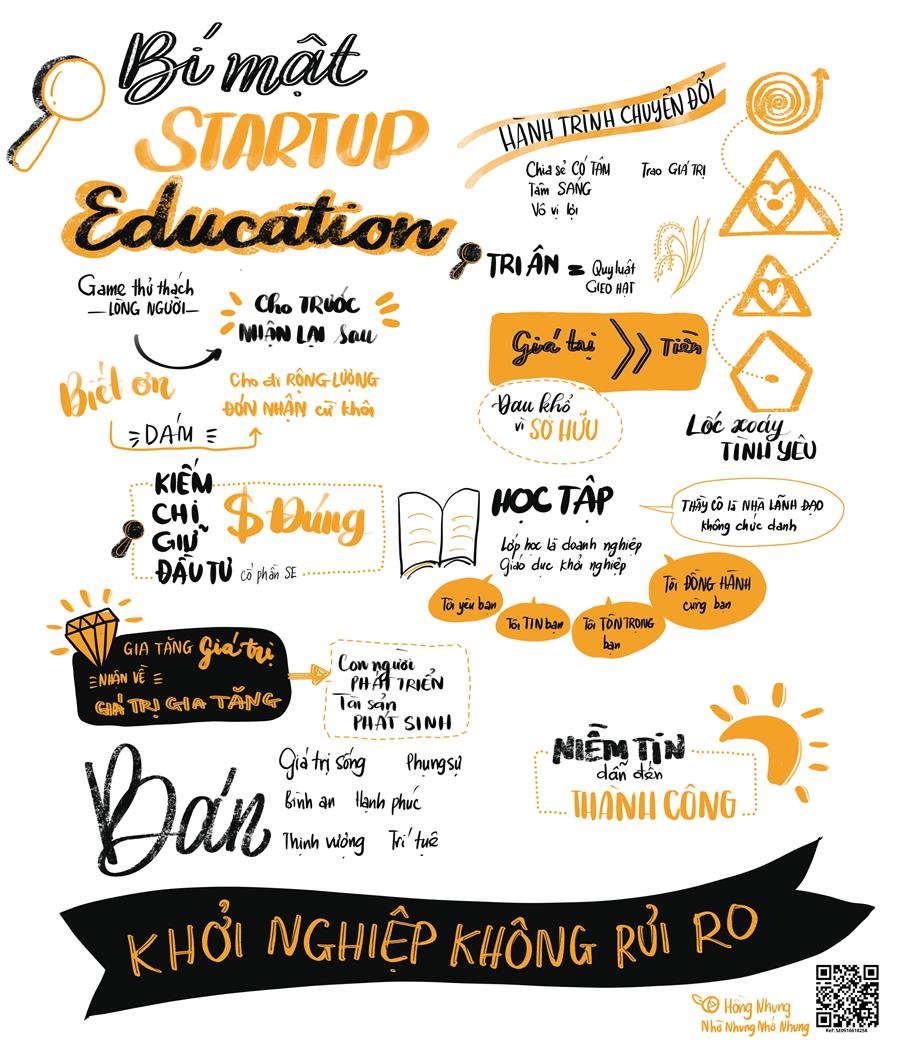 Bí mật
STARTUP
Education
Game thử thách
LÒNG NGƯỜI
Cho TRƯỚC
NHẬN LẠI Sau
Biết ơn
Cho đi RỘNG LƯỢNG
ĐÓN NHẬN cừ khôi
DÁM
KIẾM
CHI
GIỮ
ĐẦU TƯ cổ phần SE
$ Đúng
GIA TĂNG Giá trị
NHẬN VỀ
GIÁ TRỊ GIA TĂNG
Con người
PHÁT TRIỂN
Tài sản
PHÁT SINH
Bán
Giá trị sống Phụng sự
Bình an Hạnh phúc
Thịnh vượng Trí tuệ
HÀNH TRÌNH CHUYỂN ĐỔI
Chia sẻ CÓ TÂM Trao GIÁ TRỊ
Tâm SÁNG
Vô vị lợi
TRI ÂN = Quy luật
GIEO HẠT
Giá trị >> Tiền
Đau khổ
vì SỞ HỮU
Lốc xoáy
TÌNH YÊU
HỌC TẬP
THẦY CÔ là NHÀ LÃNH ĐẠO
không chức danh
Lớp học là doanh nghiệp
Giáo dục khởi nghiệp
Tôi yêu bạn
Tôi TIN bạn
Tôi TÔN TRỌNG
bạn
Tôi ĐỒNG HÀNH
cùng bạn
NIỀM TIN
dẫn đến
THÀNH CÔNG
KHỞI NGHIỆP KHÔNG RỦI RO
Hồng Nhung
Nhà Nhung Nhớ Nhung
Ref: SE0916618258